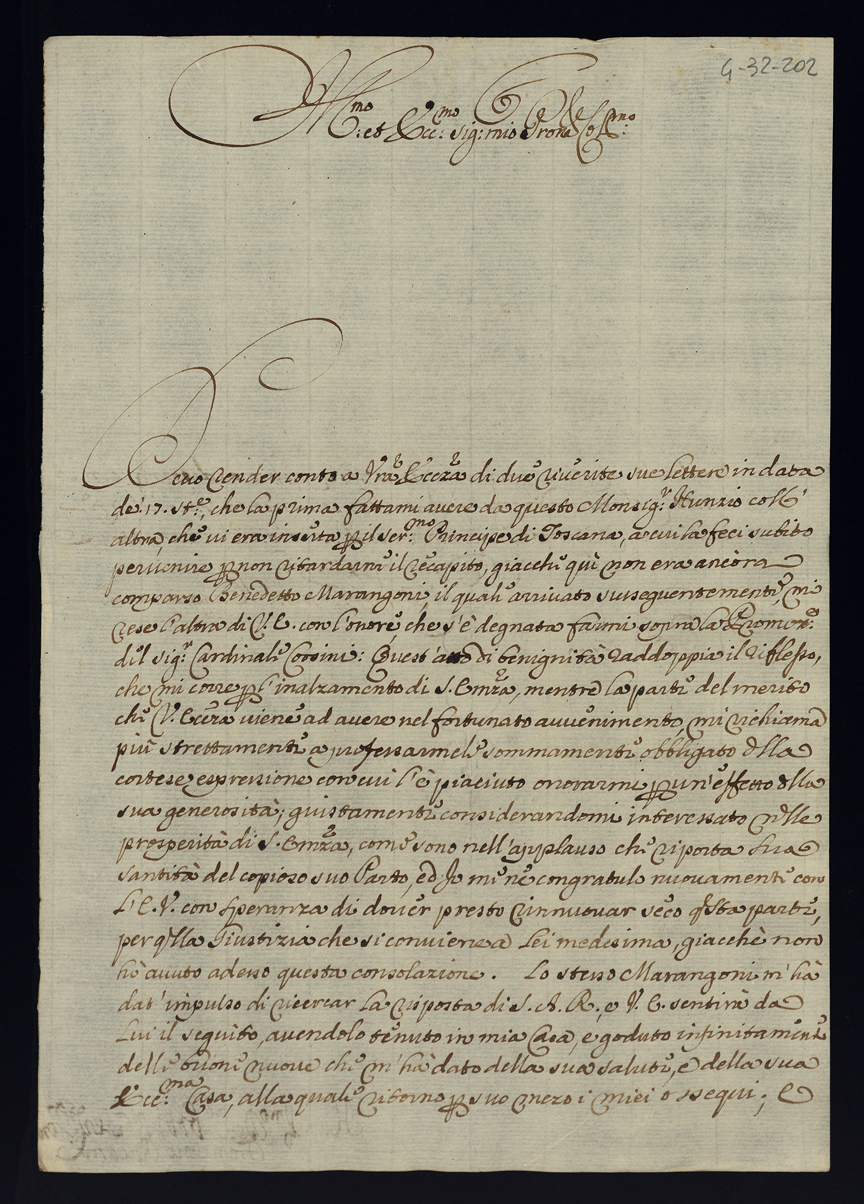 G-32-202
Ill:mo et Ecc:mo Sig: mio Prone Col:mo
Devo render conto a Vra Eccza di due riverite sue lettere in data
de' 17. Ste, che la prima fattami avere da questo Monsig.r Nunzio coll'
altra, che vi era inserta p il Ser:mo Principe di Toscana, a cui la feci subito
pervenire p non ritardarne il recapito, giacchè quì non era ancora
comparso Benedetto Marangoni, il quale arrivato susseguentemente, mi
rese l'altra di V. E. con l'onore, che s'è degnata farmi sopra la Promoz:
del Sig.r Cardinale Corsini: Quest'atto di benignità raddoppia il riflesso,
che mi corre p l'inalzamento di S. Emza, mentre la parte del merito
che V. Eccza viene ad avere nel fortunato avvenimento, mi richiama
più strettamente a professarmele sommamente obbligato della
cortese espressione con cui l'è piaciuto onorarmi p un'effetto della
sua generosità, giustamente considerandomi interessato nelle
prosperità di S. Emza, come sono nell'applauso che riporta Sua
Santità del copioso suo Parto, ed Io me ne congratulo nuovamente con
l'E. V. con speranza di dover presto rinnuovar seco qsta parte,
per qlla Giustizia che si conviene a Lei medesima, giacchè non
hò avuto adesso questa consolazione. Lo stesso Marangoni m'hà
dat'impulso di ricercar la risposta di S. A. R., e V. E. sentirà da
Lui il seguito, avendolo tenuto in mia Casa, e goduto infinitamente
delle buone nuove che m'hà dato della sua salute, e della sua
Ecc:ma Casa, alla quale ritorno p suo mezo i miei ossequi; e